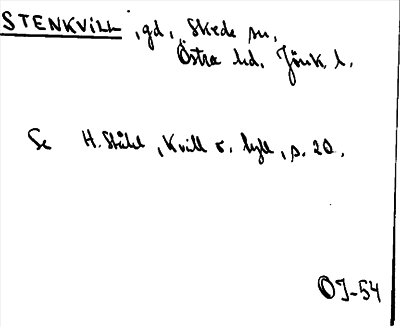 STENKVILL, gd, Skede sn,
Östra hd, Jönk. l.
Se H. Ståhl, Kvill o. hyll, s. 20.
OJ-54